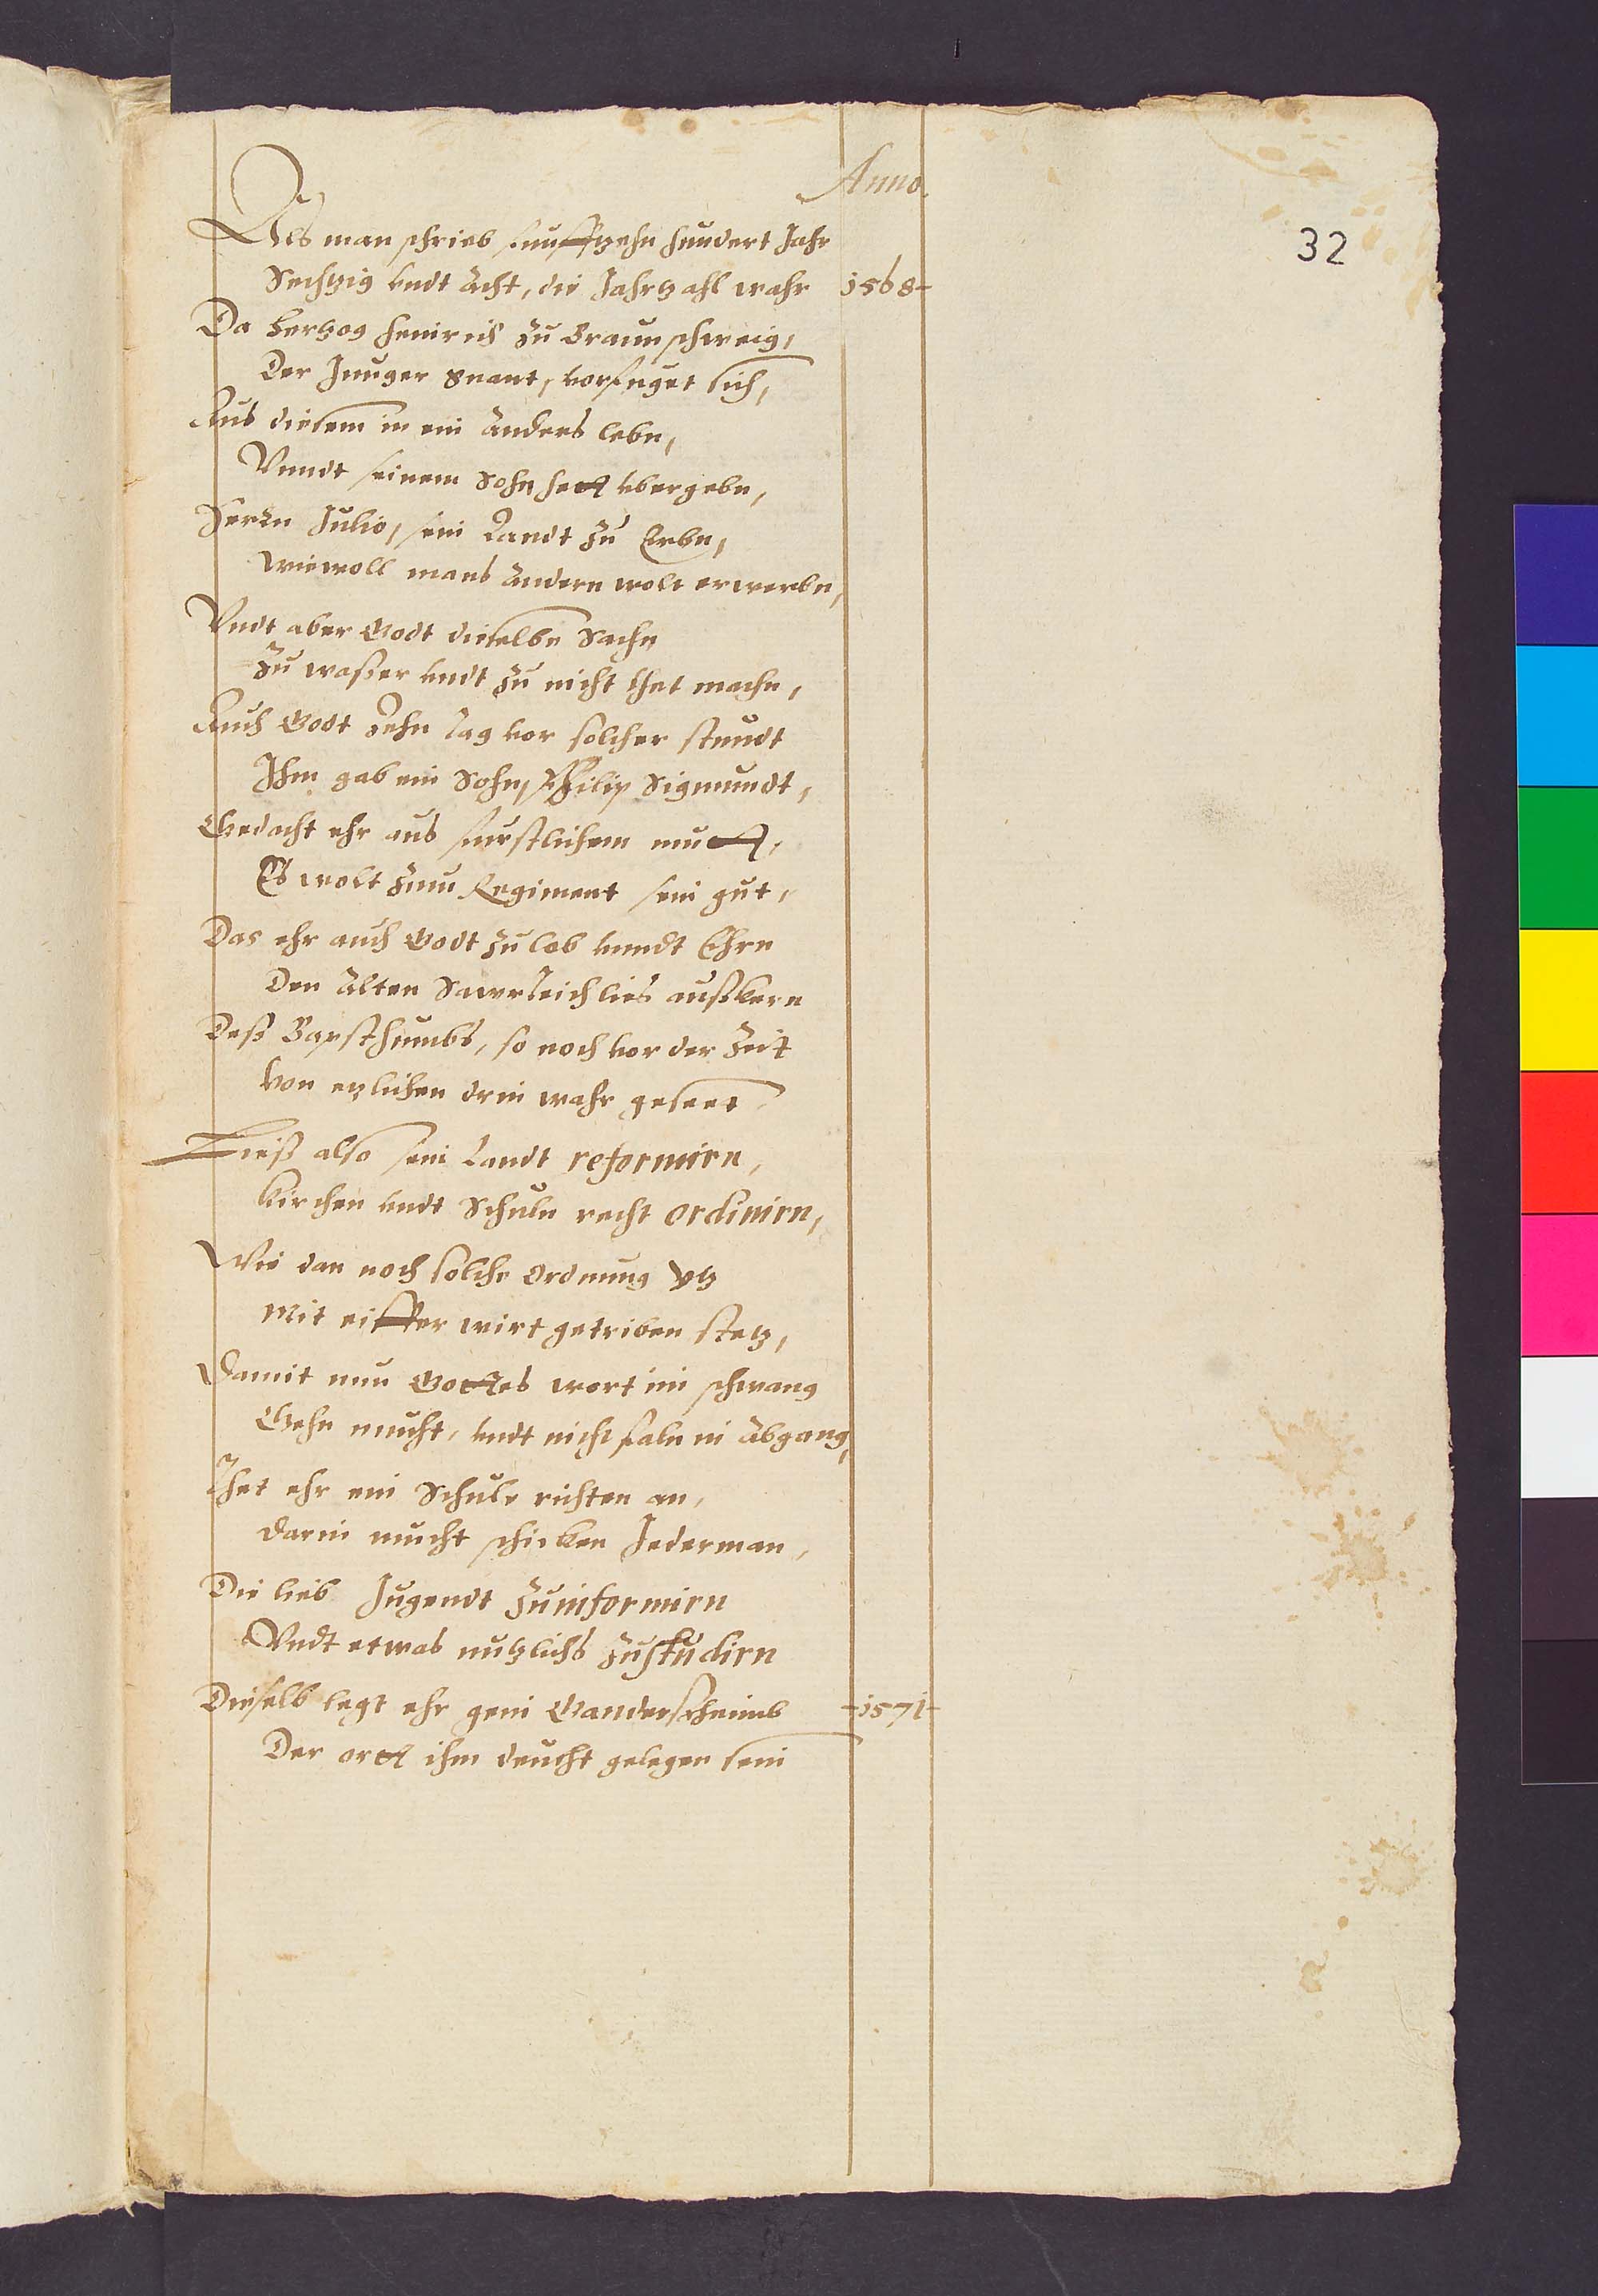 Anno.
32
Als man schrieb funfftzehn hundert Jahr
Sechtzig undt acht, die Jahrtzahl wahr 1568
Da Hertzog Heinrich zu Braunschweig,
Der Junger gnant, vorfuget sich,
Aus diesem in ein anders lebn,
Vnndt seinem Sohn hett vbergebn,
Herrn Julio, sein Landt zu Erbn,
wiewoll mans andern wolt erwerbn,
Vndt aber Godt dieselbn Sachn
Zu wasser vndt zu nicht thet machn,
Auch Godt Zehn tag vor solcher stundt
Ihm gab ein Sohn Philip Sigmundt,
Gedacht ehr aus furstlichem mutt,
Es wolt zum Regiment sein gut,
Das ehr auch Godt zu lob vnndt Ehrn
Den alten Sawrteich lies ausskern
Dess Bapsthumbs, so noch vor der Zeit
von etzlichen drin wahr geseet
Liess also sein Landt reformirn,
Kirchen vndt Schuln recht ordinirn,
Wie dan noch solche Ordnung ytz
Mit eiffer wirt getriben stetz,
Damit nun Gottes wort im schwang
Gehn mucht, vndt nicht faln in abgang,
Thet ehr ein Schule richten an,
Darin mucht schicken Jederman,
Die lieb Jugendt zuinformirn
Vndt etwas nutzlichs zustudirn
Dieselb legt ehr gein Gandersheimb 1571
Der ortt ihm deucht gelegen sein